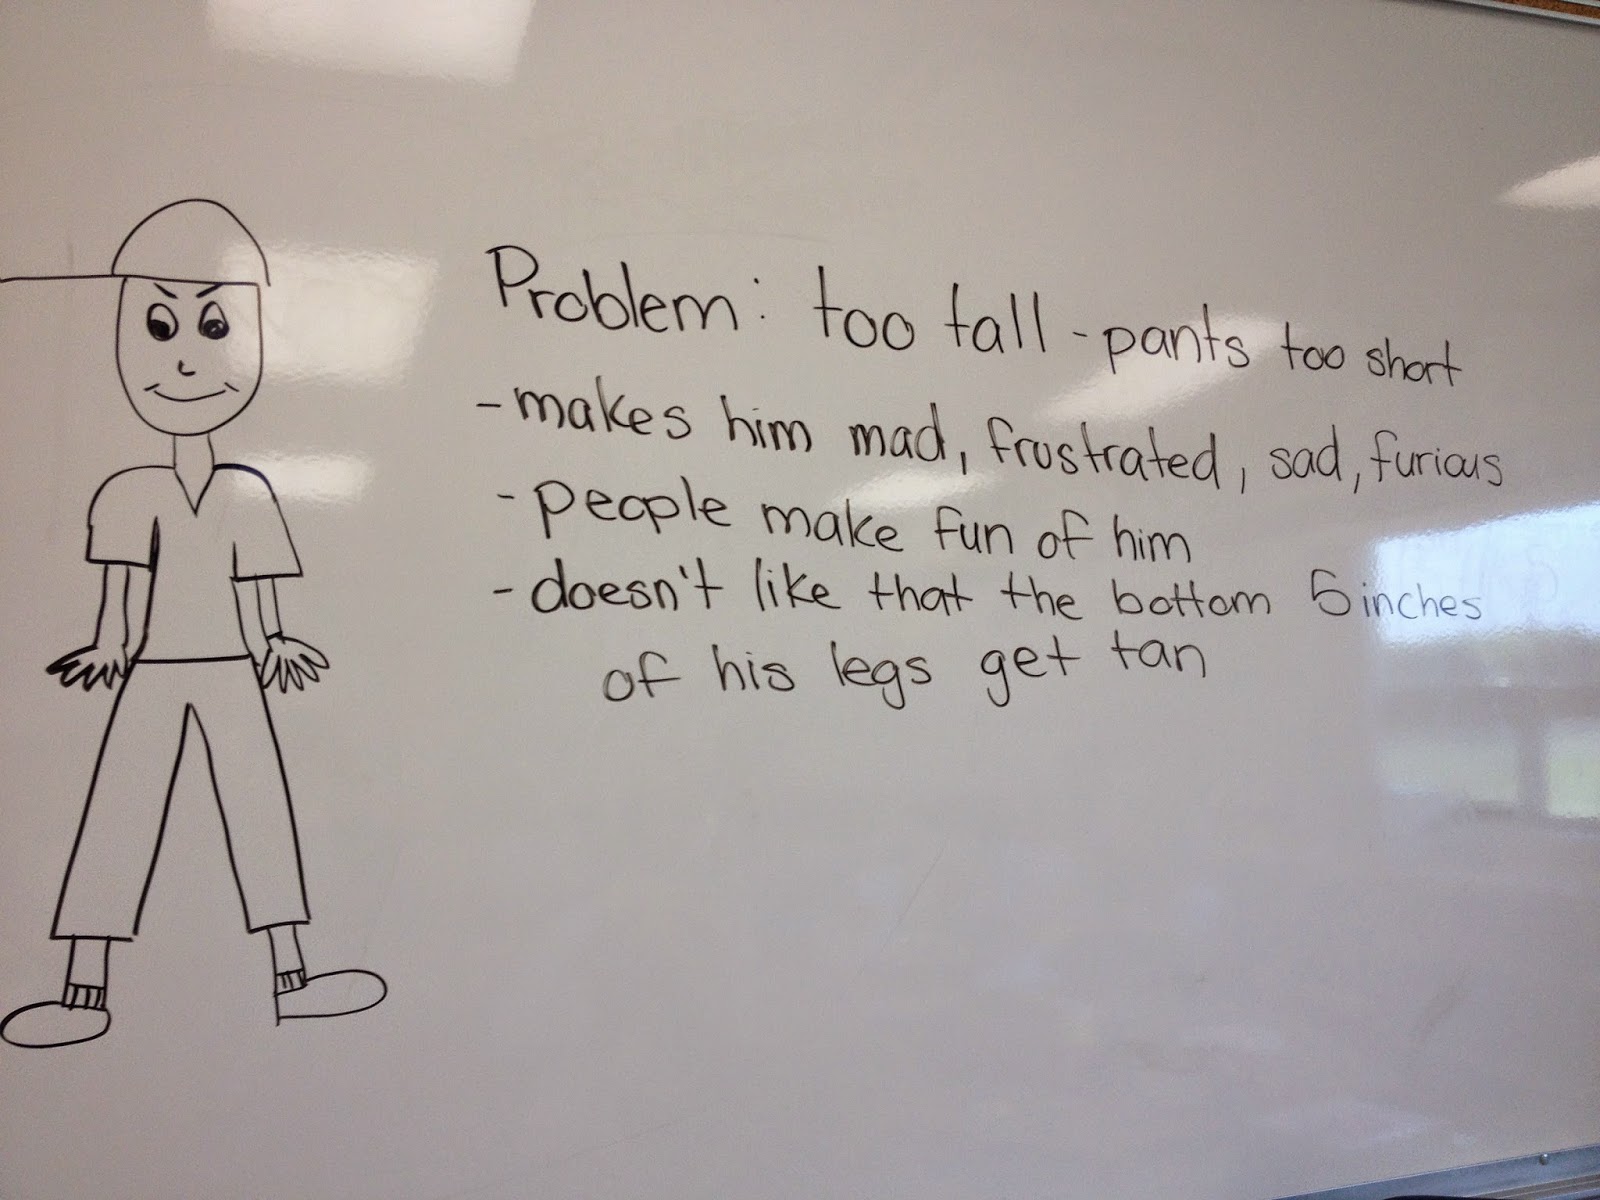 Problem: too tall - pants too short
- makes him mad, frustrated, sad, furious
- people make fun of him
- doesn't like that the bottom 5 inches
of his legs get tan